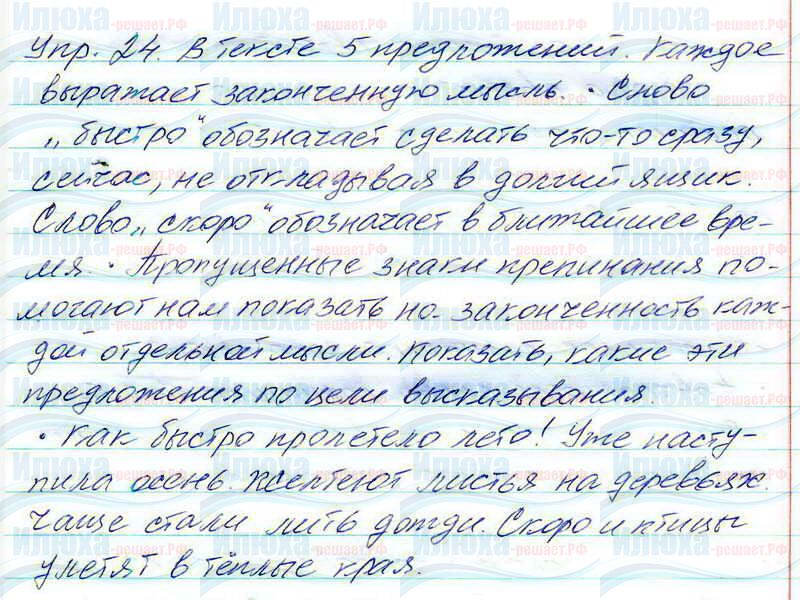 Упр. 24. В тексте 5 предложений. Каждое
выражает законченную мысль. • Слово
„быстро" обозначает сделать что-то сразу,
сейчас, не откладывая в долгий ящик.
Слово „скоро" обозначает в ближайшее вре-
мя. • Пропущенные знаки препинания по-
могают нам показать но законченность каж-
дой отдельной мысли. Показать, какие эти
предложения по цели высказывания.
• Как быстро пролетело лето! Уже насту-
пила осень. Желтеют листья на деревьях.
Чаще стали лить дожди. Скоро и птицы
улетят в тёплые края.